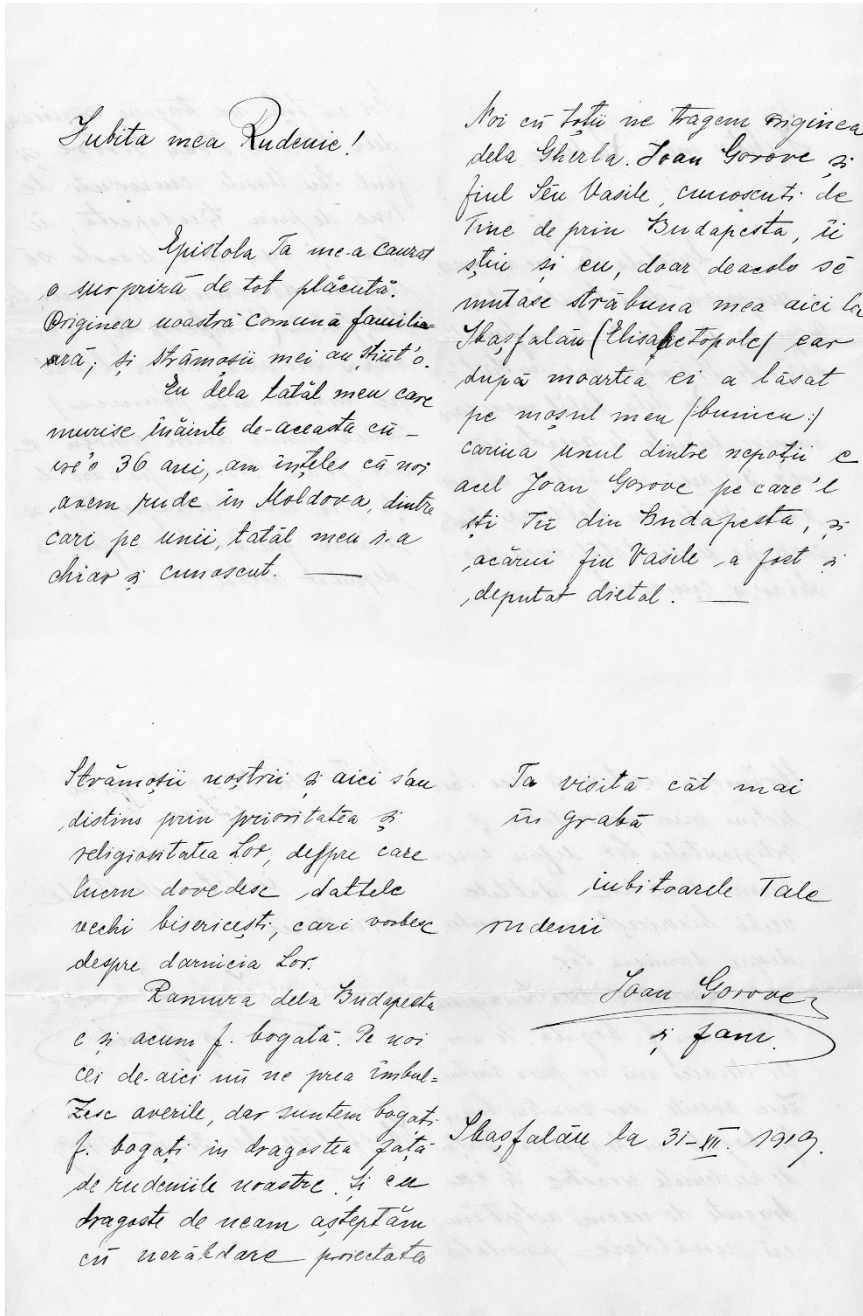 Iubita mea Rudenie!
Epistola Ta me-a cauzat
o surpriză de tot plăcută.
Originea noastră comună familia-
ară; și strămoșii mei au știut'o.
Eu dela tatăl meu care
murise înainte de-aceasta cu-
ve'o 36 ani, am înțeles că noi
avem rude în Moldova, dintre
cari pe unii, tatăl meu i-a
chiar și cunoscut. —
Noi cu toții ne tragem originea
dela Gherla. Ioan Gorove și
fiul Séu Vasile, cunoscuti de
Tine de prin Budapesta, îi
știu și eu, doar deacolo sé
mutase străbuna mea aici la
Ibașfalău (Elisabetopole) ear
după moartea ei a lăsat
pe moșul meu (bunicu:)
căruia unul dintre nepoții e
acel Ioan Gorove pe care'l
ști Tu din Budapesta, și
acărui fiu Vasile a fost și
deputat dietal. —
Strămoșii noștrii și aici s'au
distins prin prioritatea și
religiositatea Lor, despre care
lucru dovedesc dattele
vechi bisericești, cari vorbesc
despre darnicia Lor.
Ramura dela Budapesta
e și acum f. bogată. Pe noi
cei de-aici nu ne prea îmbul-
zesc averile, dar suntem bogați
f. bogați in dragostea față
de rudeniile noastre. Și cu
dragoste de neam așteptăm
cu nerăbdare proiectata
Ta visită cât mai
în grabă
iubitoarele Tale
rudenii
Ioan Gorove
și fam.
Ibașfalău la 31-XII. 1919.